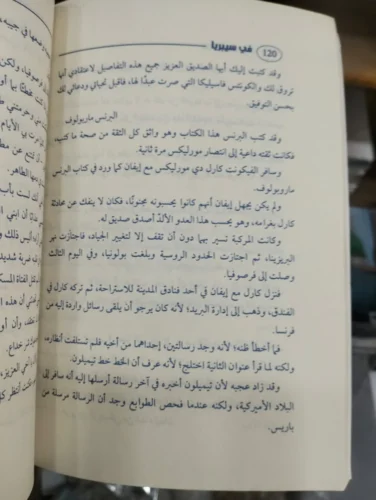 120 في سيبريا
وقد كتبت إليك أيها الصديق العزيز جميع هذه التفاصيل لاعتقادي أنها
تروق لك وللكونتس فاسيليكا التي صرت عبدًا لها، فاقبل تحياتي ودعائي لك
بحسن التوفيق.
البرنس ماريولوف
وقد كتب البرنس هذا الكتاب وهو واثق كل الثقة من صحة ما كتب،
فكانت ثقته داعية إلى انتصار مورليكس مرة ثانية.
وسافر الفيكونت كارل دي مورليكس مع إيفان كما ورد في كتاب البرنس
ماروبولوف.
ولم يكن يجهل إيفان أنهم كانوا يحسبونه مجنونًا، فكان لا ينفك عن محادثة
كارل بغرامه، وهو يحسب هذا العدو الألد أصدق صديق له.
وكانت المركبة تسير بهما دون أن تقف إلا لتغيير الجياد، فاجتازت نهر
البريزينا، ثم اجتازت الحدود الروسية وبلغت بولونيا، وفي اليوم الثالث
وصلت إلى فرصوفيا.
فنزل كارل مع إيفان في أحد فنادق المدينة للاستراحة، ثم تركه كارل في
الفندق، وذهب إلى إدارة البريد؛ لأنه كان يرجو أن يلقى رسائل واردة إليه من
فرنسا.
فما أخطأ ظنه؛ لأنه وجد رسالتين، إحداهما من أخيه فلم تستلفت أنظاره،
ولكنه لما قرأ عنوان الثانية اختلج؛ لأنه عرف أن الخط خط تيميلون.
وقد زاد عجبه لأن تيميلون أخبره في آخر رسالة أرسلها إليه أنه سافر إلى
البلاد الأميركية، ولكنه عندما فحص الطوابع وجد أن الرسالة مرسلة من
باريس.